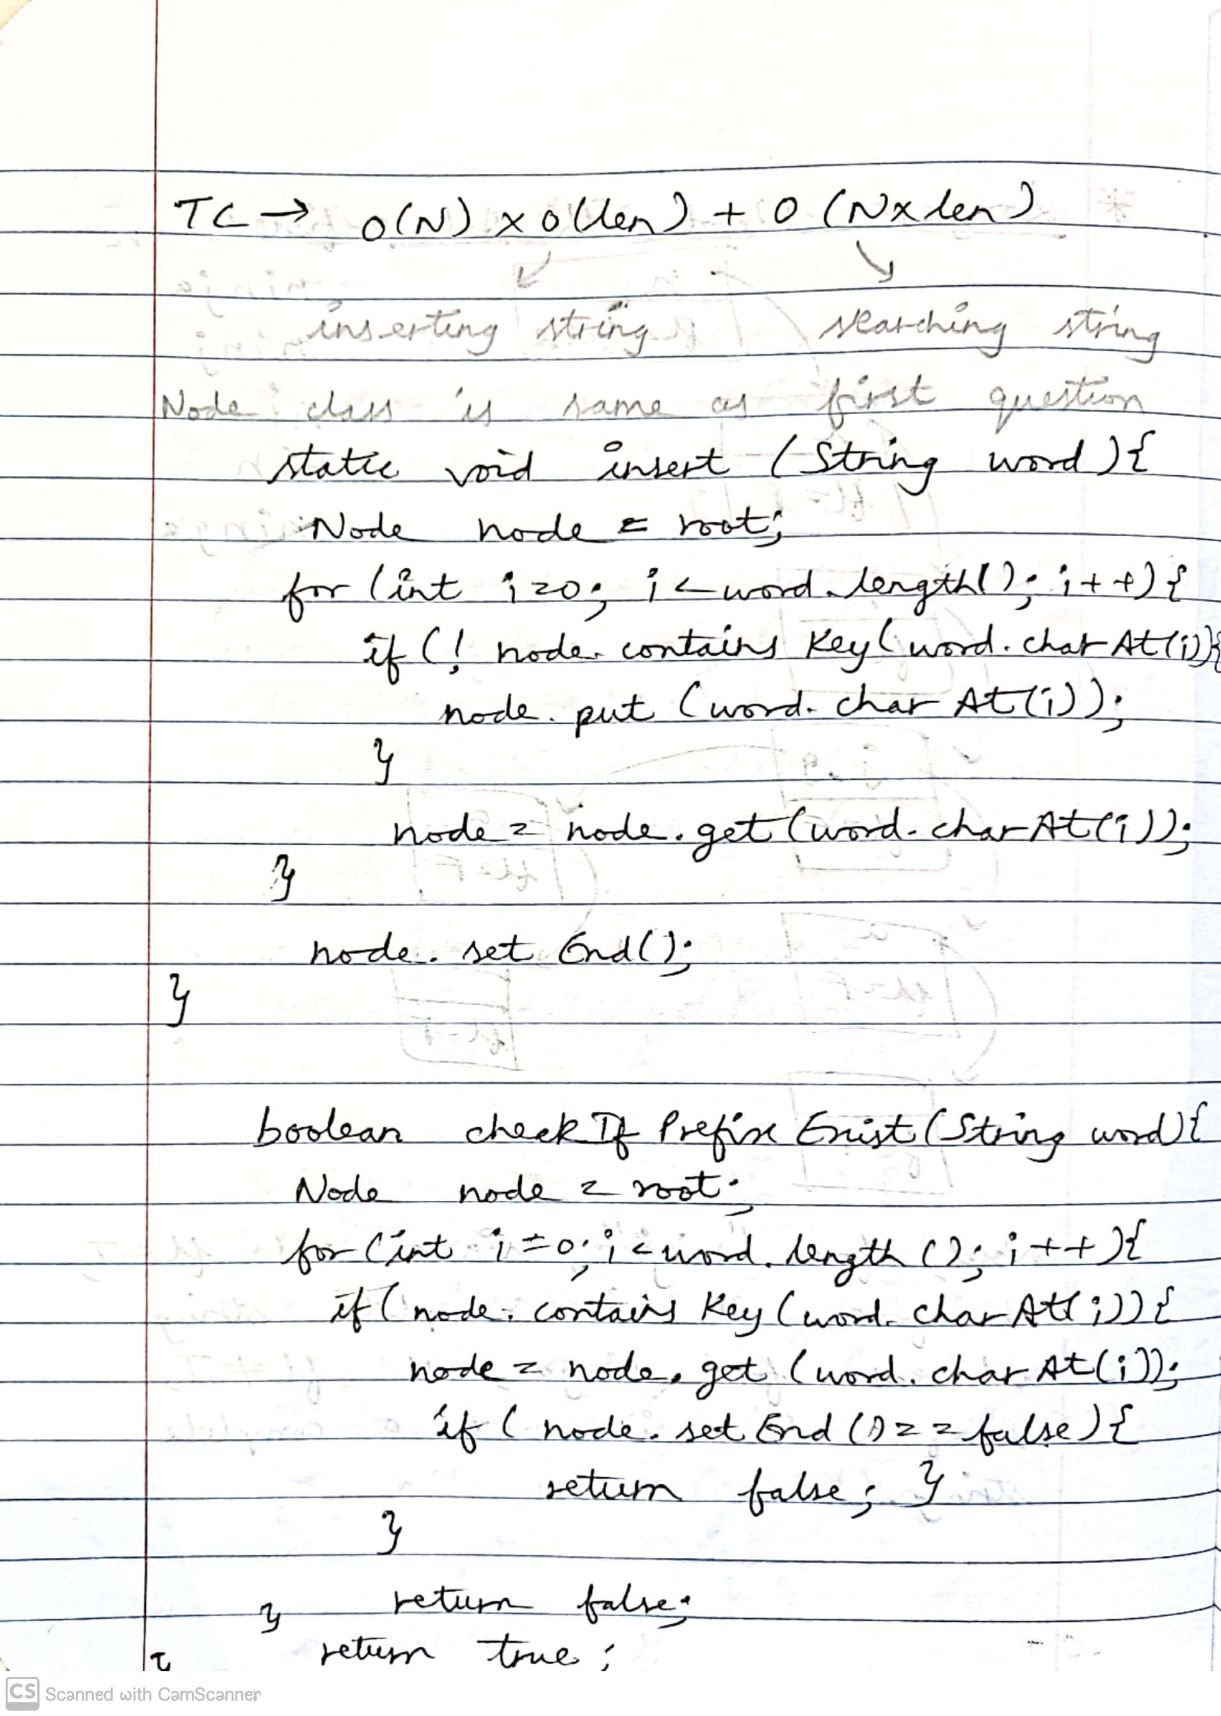 TC → O(N) x O(len) + O (Nxlen)
inserting string searching string
Node class is same as first question
static void insert (String word){
Node node = root;
for (int i=0; i<word.length(); i++){
if (! node. contains Key(word. char At(i)){
node. put (word. char At(i));
}
node = node. get (word. char At(i));
}
node. set End();
}
boolean check If Prefix Exist (String word){
Node node = root;
for (int i=0; i<word. length (); i++){
if (node. contains Key (word. char At(i)){
node = node. get (word. char At(i));
if ( node. set End ()==false){
return false; }
}
return false;
}
return true;
}
CS Scanned with CamScanner